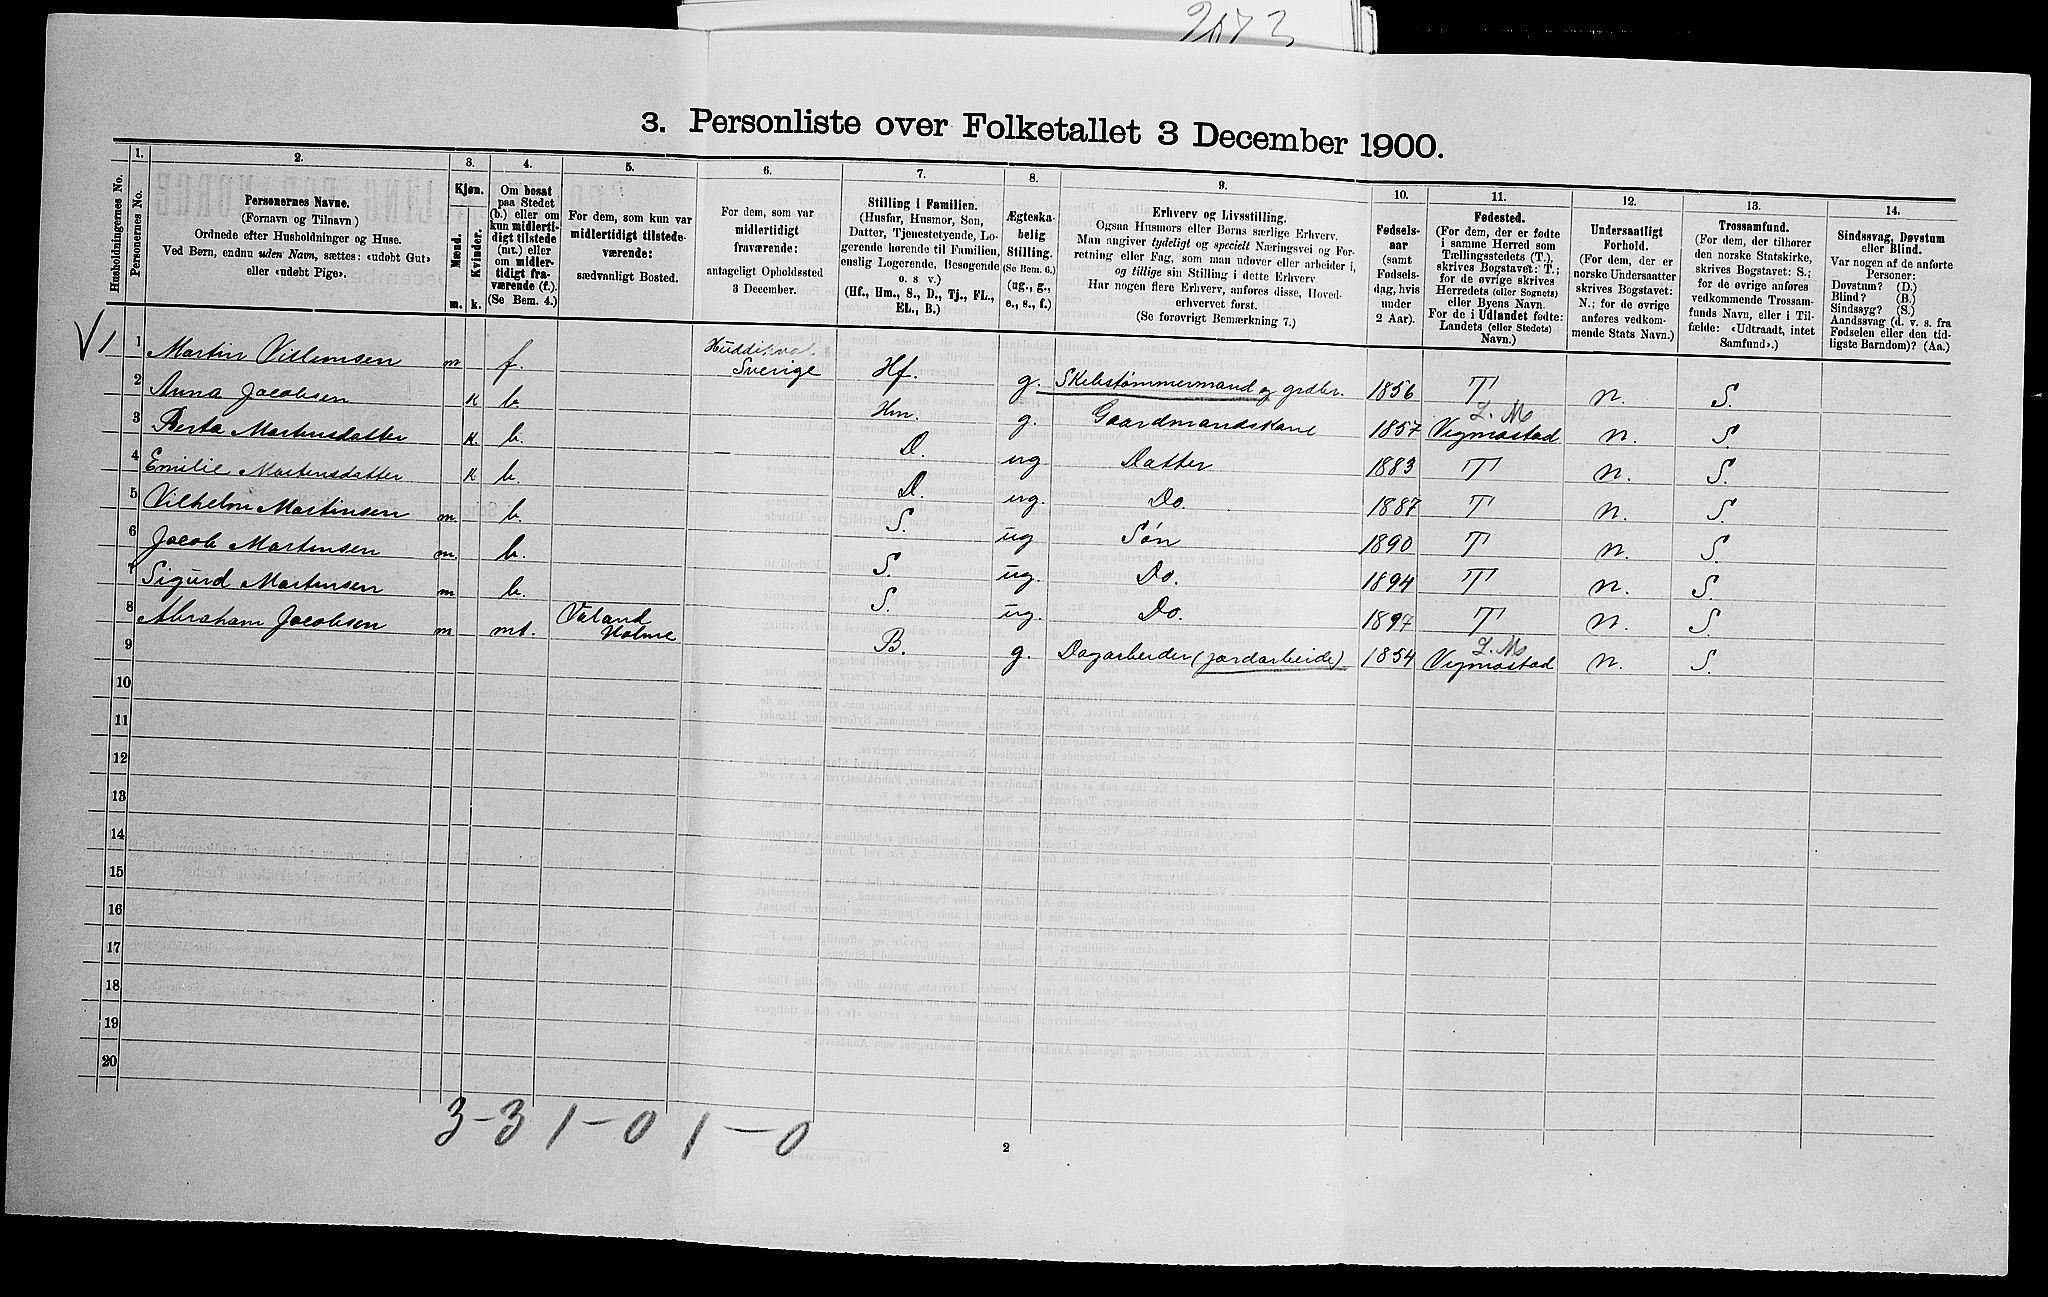 2073
3. Personliste over Folketallet 3 December 1900.
Husholdningernes No.
1.
Personernes No.
2.
Personernes Navne.
(Fornavn og Tilnavn)
Ordnede efter Husholdninger og Huse.
Ved Børn, endnu uden Navn, sættes: «udøbt Gut»
eller «udøbt Pige».
3.
Kjøn.
Mænd.
Kvinder.
m.
k.
4.
Om bosat
paa Stedet
(b.) eller om
kun midlerti-
digt tilstede
(mt.) eller
om midler-
tidigt fra-
værende (f.).
(Se Bem. 4.)
5.
For dem, som kun var
midlertidigt tilstede-
værende:
sædvanligt Bosted.
6.
For dem, som var
midlertidigt
fraværende:
antageligt Opholdssted
3 December.
7.
Stilling i Familien.
(Husfar, Husmor, Søn,
Datter, Tjenestetyende, Lo-
gerende hørende til Familien,
enslig Logerende, Besøgende
o. s v.)
(Hf., Hm., S., D., Tj., FL.,
EL., B.)
8.
Ægteska-
belig
Stilling.
(Se Bem. 6.)
(ug., g.,
e., s., f.)
9.
Erhverv og Livsstilling.
Ogsaa Husmors eller Børns særlige Erhverv.
Man angiver tydeligt og specielt Næringsvei og For-
retning eller Fag, som man udøver eller arbeider i,
og tillige sin Stilling i dette Erhverv.
Har nogen flere Erhverv, anføres disse, Hoved-
erhvervet først.
(Se forøvrigt Bemærkning 7.)
10.
Fødsels-
aar
(samt
Fødsels-
dag, hvis
under
2 Aar).
11.
Fødested.
(For dem, der er fødte
i samme Herred som
Tællingsstedets (T.),
skrives Bogstavet: T.;
for de øvrige skrives
Herredets (eller Sognets)
eller Byens Navn.
For de i Udlandet fødte:
Landets (eller Stedets)
Navn.)
12.
Undersaatligt
Forhold.
(For dem, der er
norske Undersaatter
skrives Bogstavet:
N.; for de øvrige
anføres vedkom-
mende Stats Navn.)
13.
Trossamfund.
(For dem, der tilhører
den norske Statskirke,
skrives Bogstavet: S.;
for de øvrige anføres
vedkommende Trossam-
funds Navn, eller i Til-
fælde: «Udtraadt, intet
Samfund».)
14.
Sindssvag, Døvstum
eller Blind.
Var nogen af de anførte
Personer:
Døvstum? (D.)
Blind? (B.)
Sindssyg? (S.)
Aandssvag (d. v. s. fra
Fødselen eller den tid-
ligste Barndom)? (Aa.)
V 1 1 Martin Villumsen m f. Sverige Hf. g. Skibstømmermand og grdbr. 1856 T n. S.
2 Anna Jacobsen k b. Hm. g. Gaardmandskone 1857 Z. M Vigmostad n. S.
3 Berta Martensdatter k. b. D. ug Datter 1883 T n. S.
4 Emilie Martensdatter k b. D. ug. Do. 1887 T n. S.
5 Vilhelm Martinsen m. b. S. ug Søn 1890 T n. S.
6 Jacob Martensen m. b. S. ug. Do. 1894 T n. S.
7 Sigurd Martensen m b. S. ug. Do. 1897 T n. S.
8 Abraham Jacobsen m mt. Valand Holme B. g. Dagarbeider (jordarbeide) 1854 Z. M Vigmostad n. S.
9
10
11
12
13
14
15
16
17
18
19
20
3 - 3 1 - 0 1 - 0
2